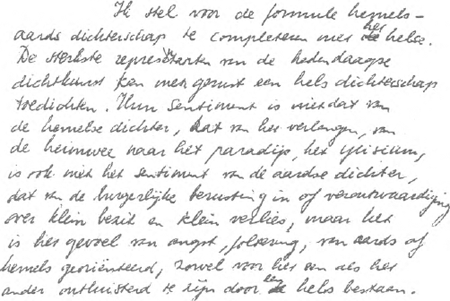 Ik stel voor de formule hemels-
aards dichterschap te completeren met het helse.
De sterkste representanten van de hedendaagse
dichtkunst kan men gerust een hels dichterschap
toedichten. Hun sentiment is niet dat van
de hemelse dichter, dat van het verlangen, van
de heimwee naar het paradijs, het Elisium,
is ook niet het sentiment van de aardse dichter,
dat van de burgerlijke berusting in of verontwaardiging
over klein bezit en klein verlies, maar het
is het gevoel van angst, foltering, van aards of
hemels georiënteerd, zowel voor het een als het
ander ontluisterd te zijn door een hels bestaan.